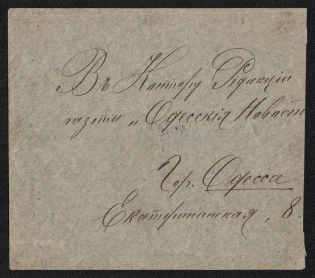 Въ Контору Редакціи
газеты „Одесскія Новости
Гор. Одесса
Екатерининская, 8.